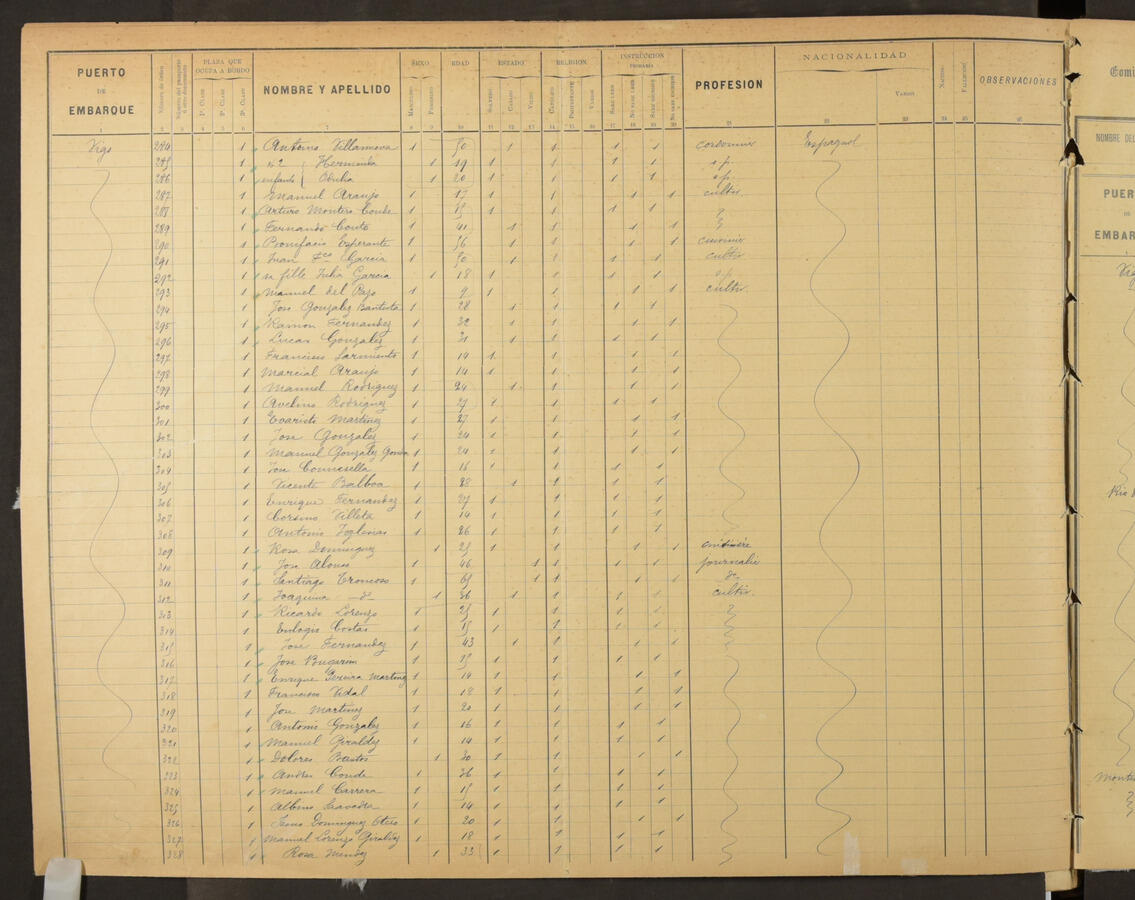 PUERTO DE EMBARQUE
Número de orden
PLAZA QUE OCUPA A BORDO
1ª CLASE 2ª CLASE 3ª CLASE
NOMBRE Y APELLIDO
SEXO
MASCULINO FEMENINO
EDAD
ESTADO
SOLTERO CASADO VIUDO
RELIGION
CATÓLICO PROTESTANTE VARIOS
INSTRUCCION PRIMARIA
SABE LEER NO SABE LEER SABE ESCRIBIR NO SABE ESCRIBIR
PROFESION
NACIONALIDAD
VARIOS
NACIDO FALLECIDO
OBSERVACIONES
Vigo 284 1 Antonio Villanueva 1 50 1 1 1 1 Espagnol
285 1 Herminda 1 19 1 1 1 1 s.p.
286 1 enfants Obdulia 1 20 1 1 1 1 s.p.
287 1 Manuel Araujo 1 17 1 1 1 1 cultiv.
288 1 Arturo Montero Conde 1 15 1 1 1 1
289 1 Fernando Couto 1 41 1 1 1 1
290 1 Bonifacio Esperante 1 36 1 1 1 1
291 1 Juan Fco Garcia 1 50 1 1 1 1 cultiv.
292 1 sa fille Julia Garcia 1 18 1 1 1 1 s.p.
293 1 Manuel del Pazo 1 9 1 1 1 1 cultiv.
294 1 Jose Gonzalez Bautista 1 28 1 1 1 1
295 1 Ramon Fernandez 1 32 1 1 1 1
296 1 Lucas Gonzalez 1 31 1 1 1 1
297 1 Francisco Sarmiento 1 14 1 1 1 1
298 1 Marcial Araujo 1 14 1 1 1 1
299 1 Manuel Rodriguez 1 24 1 1 1 1
300 1 Avelino Rodriguez 1 27 1 1 1 1
301 1 Evaristo Martinez 1 27 1 1 1 1
302 1 Jose Gonzalez 1 24 1 1 1 1
303 1 Manuel Gonzalez 1 24 1 1 1 1
304 1 Jose 1 16 1 1 1 1
305 1 Vicente Balboa 1 28 1 1 1 1
306 1 Enrique Fernandez 1 27 1 1 1 1
307 1 Villeta 1 14 1 1 1 1
308 1 Antonio Yglesias 1 26 1 1 1 1
309 1 Rosa Dominguez 1 25 1 1 1 1
310 1 Jose Alonso 1 46 1 1 1 1 journalie
311 1 Santiago Troncoso 1 65 1 1 1 1 do
312 1 Joaquina do 1 36 1 1 1 1 cultiv.
313 1 Ricardo Lorenzo 1 25 1 1 1 1
314 1 Eulogio Costas 1 15 1 1 1 1
315 1 Jose Fernandez 1 43 1 1 1 1
316 1 Jose Bougarin 1 15 1 1 1 1
317 1 Enrique Pereira Martinez 1 14 1 1 1 1
318 1 Francisco Vidal 1 18 1 1 1 1
319 1 Jose Martinez 1 20 1 1 1 1
320 1 Antonio Gonzalez 1 16 1 1 1 1
321 1 Manuel Giraldez 1 14 1 1 1 1
322 1 Dolores Bastos 1 30 1 1 1 1
323 1 Andres Conde 1 36 1 1 1 1
324 1 Manuel Carrera 1 15 1 1 1 1
325 1 Albino Saavedra 1 14 1 1 1 1
326 1 Jesus Dominguez 1 20 1 1 1 1
327 1 Manuel Lorenzo Giraldez 1 18 1 1 1 1
328 1 Rosa Mendez 1 33 1 1 1 1
NOMBRE DEL